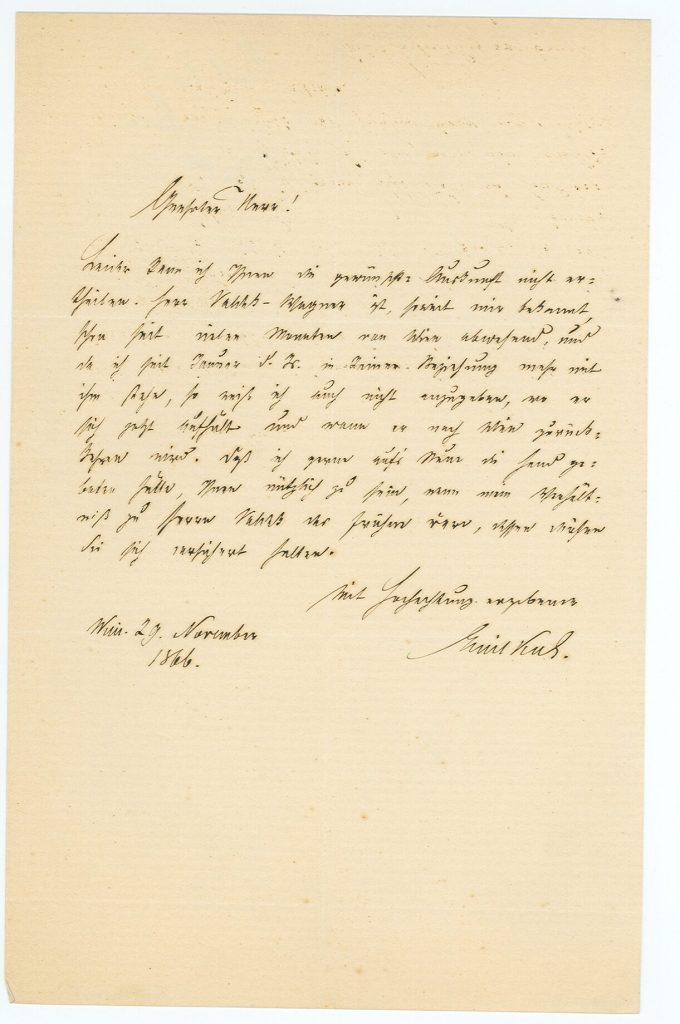 Geehrter Herr!
Leider kann ich Ihnen die gewünschte Auskunft nicht er-
theilen. Herr Wagner ist, soweit mir bekannt,
schon seit vielen Monaten von Wien abwesend, und
da ich seit Januar d. Js. in keiner Beziehung mehr mit
ihm stehe, so weiß ich auch nicht anzugeben, wo er
sich jetzt aufhält und wann er nach Wien zurück-
kehren wird. Daß ich gerne aufs Neue die Hand ge-
boten hätte, Ihnen nützlich zu sein, wenn mein Verhält-
niß zu Herrn das frühere wäre, dessen dürfen
Sie sich versichert halten.
Mit Hochachtung ergebener
Emil Kuh.
Wien. 29. November
1866.